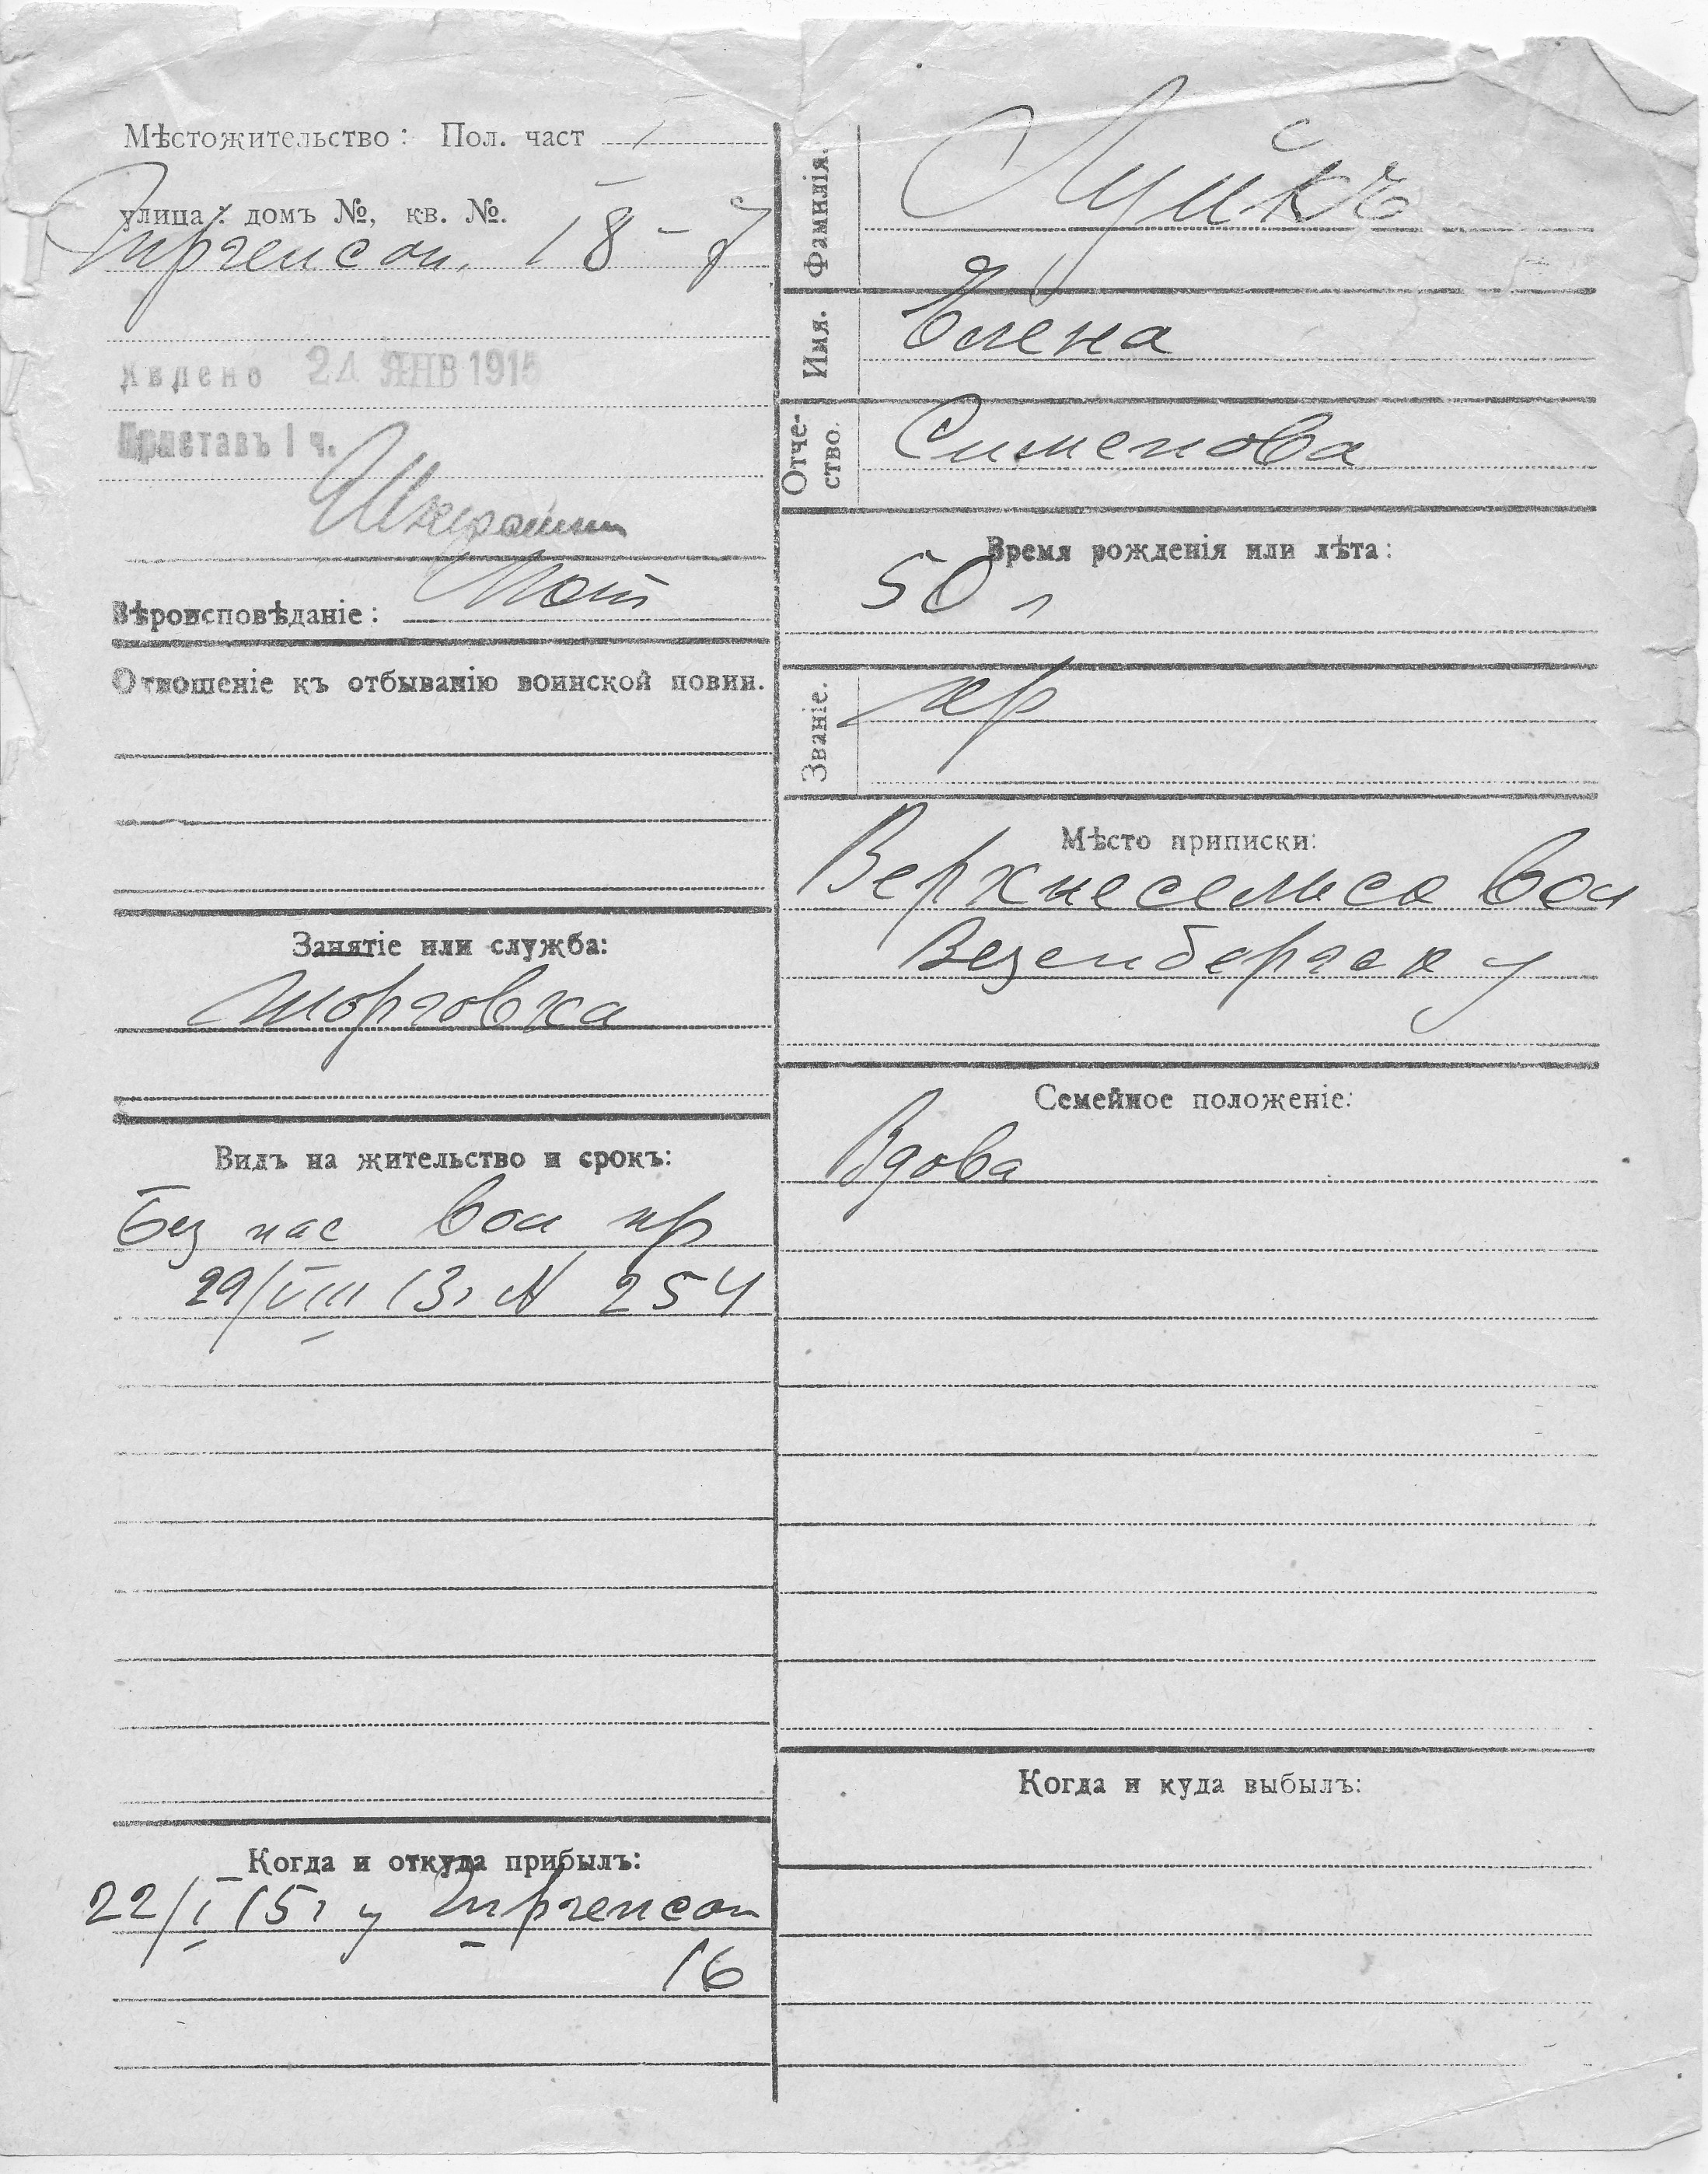 Мѣстожительство: Пол. част I
улица: домъ №, кв. №.
18 - 7
Явлено 24 ЯНВ 1915
Приставъ I ч.
Вѣроисповѣданіе:
Отношеніе къ отбыванію воинской повин.
Занятіе или служба:
Торговка
Видъ на жительство и срокъ:
Без пас вол пр
29/VIII 13г N 254
Когда и откуда прибылъ:
22/I 15г у
16
Фамилія. Луйкъ
Имя. Елена
Отче-
ство. Сименова
Время рожденія или лѣта:
50 л
Званіе. кр
Мѣсто приписки:
Верхнесельск вол
Везенбергск у
Семейное положеніе:
Вдова
Когда и куда выбылъ: